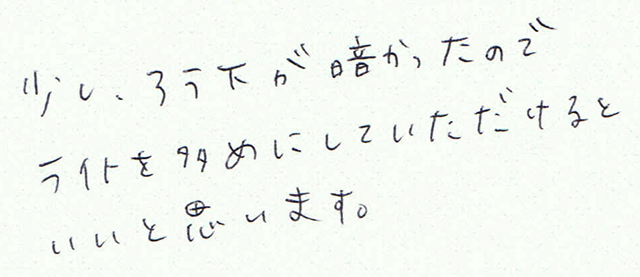 少し、ろう下が暗かったので
ライトを多めにしていただけると
いいと思います。